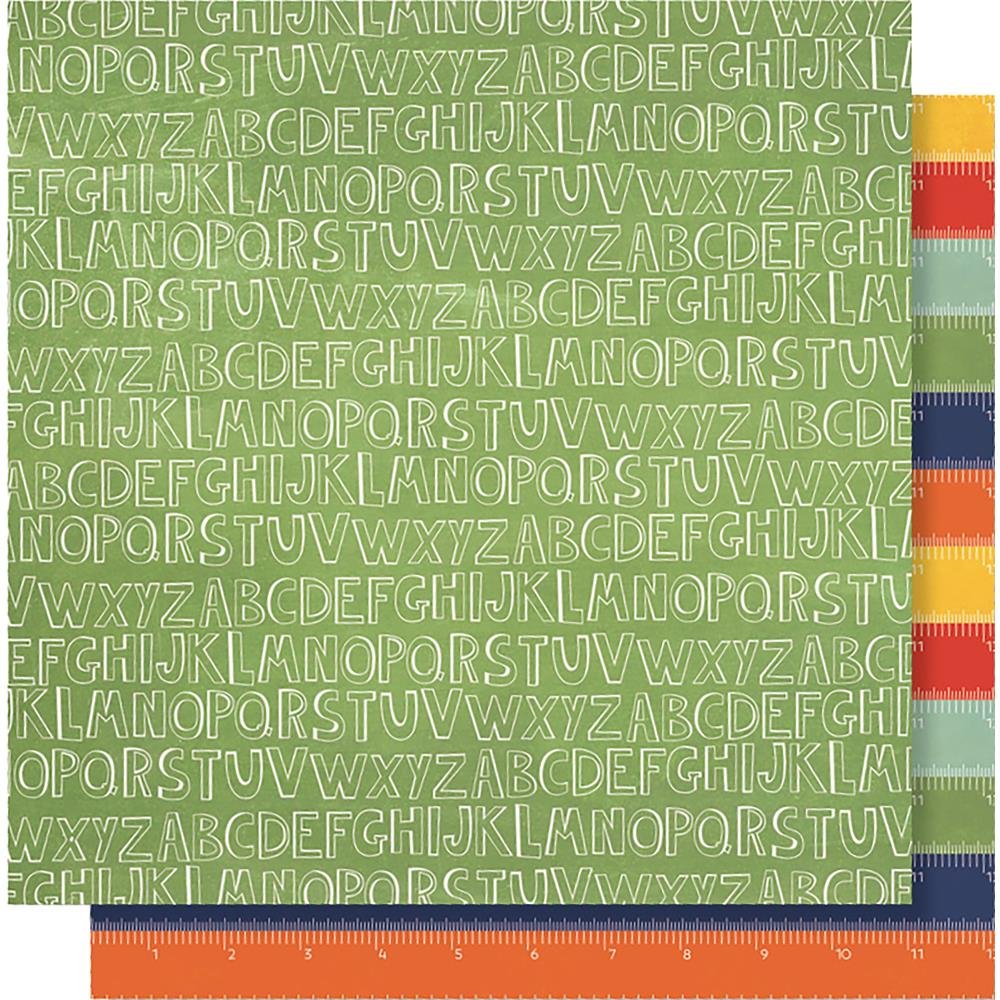 ABCDEFGHIJKLMNOPQRSTUVWXYZABCDEF
NOPQRSTUVWXYZABCDEFGHIJKL
VWXYZABCDEFGHIJKLMNOPQRSTU
EFGHIJKLMNOPQRSTUVWXYZABCD
KLMNOPQRSTUVWXYZABCDEFGHI
OPQRSTUVWXYZABCDEFGHIJKLM
WXYZABCDEFGHIJKLMNOPQRSTUV
FGHIJKLMNOPQRSTUVWXYZABCDE
ABCDEFGHIJKLMNOPQRSTUVWXYZ
NOPQRSTUVWXYZABCDEFGHIJKL
VWXYZABCDEFGHIJKLMNOPQRSTU
EFGHIJKLMNOPQRSTUVWXYZABCD
KLMNOPQRSTUVWXYZABCDEFGHI
OPQRSTUVWXYZABCDEFGHIJKLM
WXYZABCDEFGHIJKLMNOPQRSTUV
FGHIJKLMNOPQRSTUVWXYZABCDE
11
11
11
11
11
11
11
11
11
11
11
1 2 3 4 5 6 7 8 9 10 11